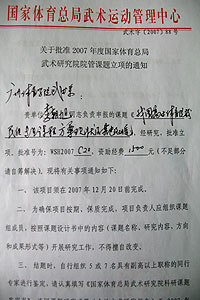 国家体育总局武术运动管理中心
武术字〔2007〕88号
关于批准 2007 年度国家体育总局
武术研究院院管课题立项的通知
广州体育学院
贵单位 同志负责申报的课题《
》,经研究,批准立
项。批准号为:WSH2007 C20。资助经费1500元(不足部分
请自筹解决)。现将有关事项通知如下:
一、该项目须在 2007 年 12 月 20 日前完成。
二、为确保项目按期、保质完成,项目负责人应组织课题
组成员,按照课题设计书中的内容(课题名称、研究内容、方向
和成果形式等)开展研究工作,不得擅自改变。
三、结题时,自行组织 5 或 7 名具有副高以上职称的同行
专家进行鉴定,请认真填写《国家体育总局武术研究院科研课题